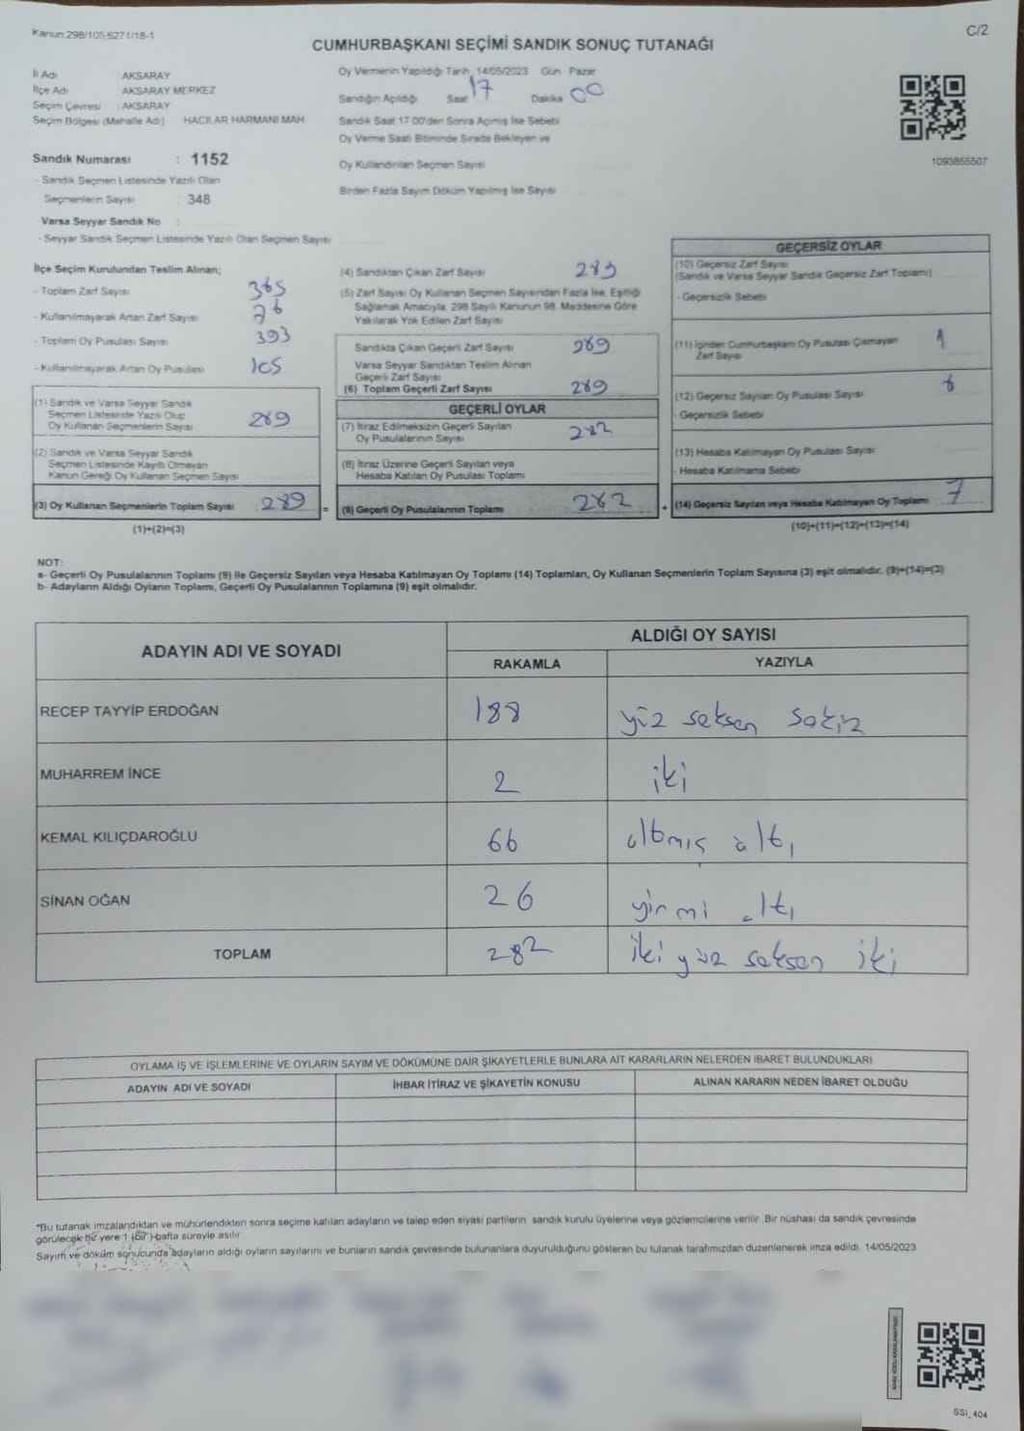 Kanun:298/105-5271/18-1
C/2
CUMHURBAŞKANI SEÇİMİ SANDIK SONUÇ TUTANAĞI
İl Adı AKSARAY
İlçe Adı AKSARAY MERKEZ
Seçim Çevresi : AKSARAY
Seçim Bölgesi (Mahalle Adı) HACILAR HARMANI MAH.
Sandık Numarası : 1152
- Sandık Seçmen Listesinde Yazılı Olan
Seçmenlerin Sayısı 348
Varsa Seyyar Sandık No :
- Seyyar Sandık Seçmen Listesinde Yazılı Olan Seçmen Sayısı
Oy Vermenin Yapıldığı Tarih 14/05/2023 Gün Pazar
Sandığın Açıldığı Saat 17 Dakika 00
Sandık Saat 17.00'den Sonra Açılmış İse Sebebi
Oy Verme Saati Bitiminde Sırada Bekleyen ve
Oy Kullandırılan Seçmen Sayısı
Birden Fazla Sayım Döküm Yapılmış İse Sayısı
1093855507
İlçe Seçim Kurulundan Teslim Alınan;
- Toplam Zarf Sayısı 365
- Kullanılmayarak Artan Zarf Sayısı 76
- Toplam Oy Pusulası Sayısı 393
- Kullanılmayarak Artan Oy Pusulası 105
(1) Sandık ve Varsa Seyyar Sandık
Seçmen Listesinde Yazılı Olup
Oy Kullanan Seçmenlerin Sayısı 289
(2) Sandık ve Varsa Seyyar Sandık
Seçmen Listesinde Kayıtlı Olmayan
Kanun Gereği Oy Kullanan Seçmen Sayısı
(3) Oy Kullanan Seçmenlerin Toplam Sayısı 289 =
(1)+(2)=(3)
(4) Sandıktan Çıkan Zarf Sayısı 289
(5) Zarf Sayısı Oy Kullanan Seçmen Sayısından Fazla İse, Eşitliği
Sağlamak Amacıyla, 298 Sayılı Kanunun 98. Maddesine Göre
Yakılarak Yok Edilen Zarf Sayısı
Sandıkta Çıkan Geçerli Zarf Sayısı 289
Varsa Seyyar Sandıktan Teslim Alınan
Geçerli Zarf Sayısı
(6) Toplam Geçerli Zarf Sayısı 289
GEÇERLİ OYLAR
(7) İtiraz Edilmeksizin Geçerli Sayılan
Oy Pusulalarının Sayısı 282
(8) İtiraz Üzerine Geçerli Sayılan veya
Hesaba Katılan Oy Pusulası Toplamı
(9) Geçerli Oy Pusulalarının Toplamı 282 +
GEÇERSİZ OYLAR
(10) Geçersiz Zarf Sayısı
(Sandık ve Varsa Seyyar Sandık Geçersiz Zarf Toplamı)
- Geçersizlik Sebebi
(11) İçinden Cumhurbaşkanı Oy Pusulası Çıkmayan
Zarf Sayısı 1
(12) Geçersiz Sayılan Oy Pusulası Sayısı 6
- Geçersizlik Sebebi
(13) Hesaba Katılmayan Oy Pusulası Sayısı
- Hesaba Katılmama Sebebi
(14) Geçersiz Sayılan veya Hesaba Katılmayan Oy Toplamı 7
(10)+(11)+(12)+(13)=(14)
NOT:
a- Geçerli Oy Pusulalarının Toplamı (9) ile Geçersiz Sayılan veya Hesaba Katılmayan Oy Toplamı (14) Toplamları, Oy Kullanan Seçmenlerin Toplam Sayısına (3) eşit olmalıdır. (9)+(14)=(3)
b- Adayların Aldığı Oyların Toplamı, Geçerli Oy Pusulalarının Toplamına (9) eşit olmalıdır.
ADAYIN ADI VE SOYADI ALDIĞI OY SAYISI
RAKAMLA YAZIYLA
RECEP TAYYİP ERDOĞAN 188 yüz seksen sekiz
MUHARREM İNCE 2 iki
KEMAL KILIÇDAROĞLU 66 altmış altı
SİNAN OĞAN 26 yirmi altı
TOPLAM 282 iki yüz seksen iki
OYLAMA İŞ VE İŞLEMLERİNE VE OYLARIN SAYIM VE DÖKÜMÜNE DAİR ŞİKAYETLERLE BUNLARA AİT KARARLARIN NELERDEN İBARET BULUNDUKLARI
ADAYIN ADI VE SOYADI İHBAR İTİRAZ VE ŞİKAYETİN KONUSU ALINAN KARARIN NEDEN İBARET OLDUĞU
"Bu tutanak imzalandıktan ve mühürlendikten sonra seçime katılan adayların ve talep eden siyasi partilerin sandık kurulu üyelerine veya gözlemcilerine verilir. Bir nüshası da sandık çevresinde
görülecek bir yere 1 (bir) hafta süreyle asılır.
Sayım ve döküm sonucunda adayların aldığı oyların sayılarını ve bunların sandık çevresinde bulunanlara duyurulduğunu gösteren bu tutanak tarafımızdan düzenlenerek imza edildi. 14/05/2023
SSİ_404